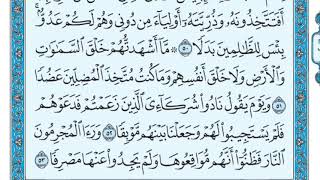 أَفَتَتَّخِذُونَهُۥ وَذُرِّيَّتَهُۥٓ أَوْلِيَآءَ مِن دُونِى وَهُمْ لَكُمْ عَدُوُّۢ ۚ
بِئْسَ لِلظَّٰلِمِينَ بَدَلًا ٥٠ ۞ مَّآ أَشْهَدتُّهُمْ خَلْقَ ٱلسَّمَٰوَٰتِ
وَٱلْأَرْضِ وَلَا خَلْقَ أَنفُسِهِمْ وَمَا كُنتُ مُتَّخِذَ ٱلْمُضِلِّينَ عَضُدًا
٥١ وَيَوْمَ يَقُولُ نَادُوا۟ شُرَكَآءِىَ ٱلَّذِينَ زَعَمْتُمْ فَدَعَوْهُمْ
فَلَمْ يَسْتَجِيبُوا۟ لَهُمْ وَجَعَلْنَا بَيْنَهُم مَّوْبِقًا ٥٢ وَرَءَا ٱلْمُجْرِمُونَ
ٱلنَّارَ فَظَنُّوٓا۟ أَنَّهُم مُّوَاقِعُوهَا وَلَمْ يَجِدُوا۟ عَنْهَا مَصْرِفًا ٥٣